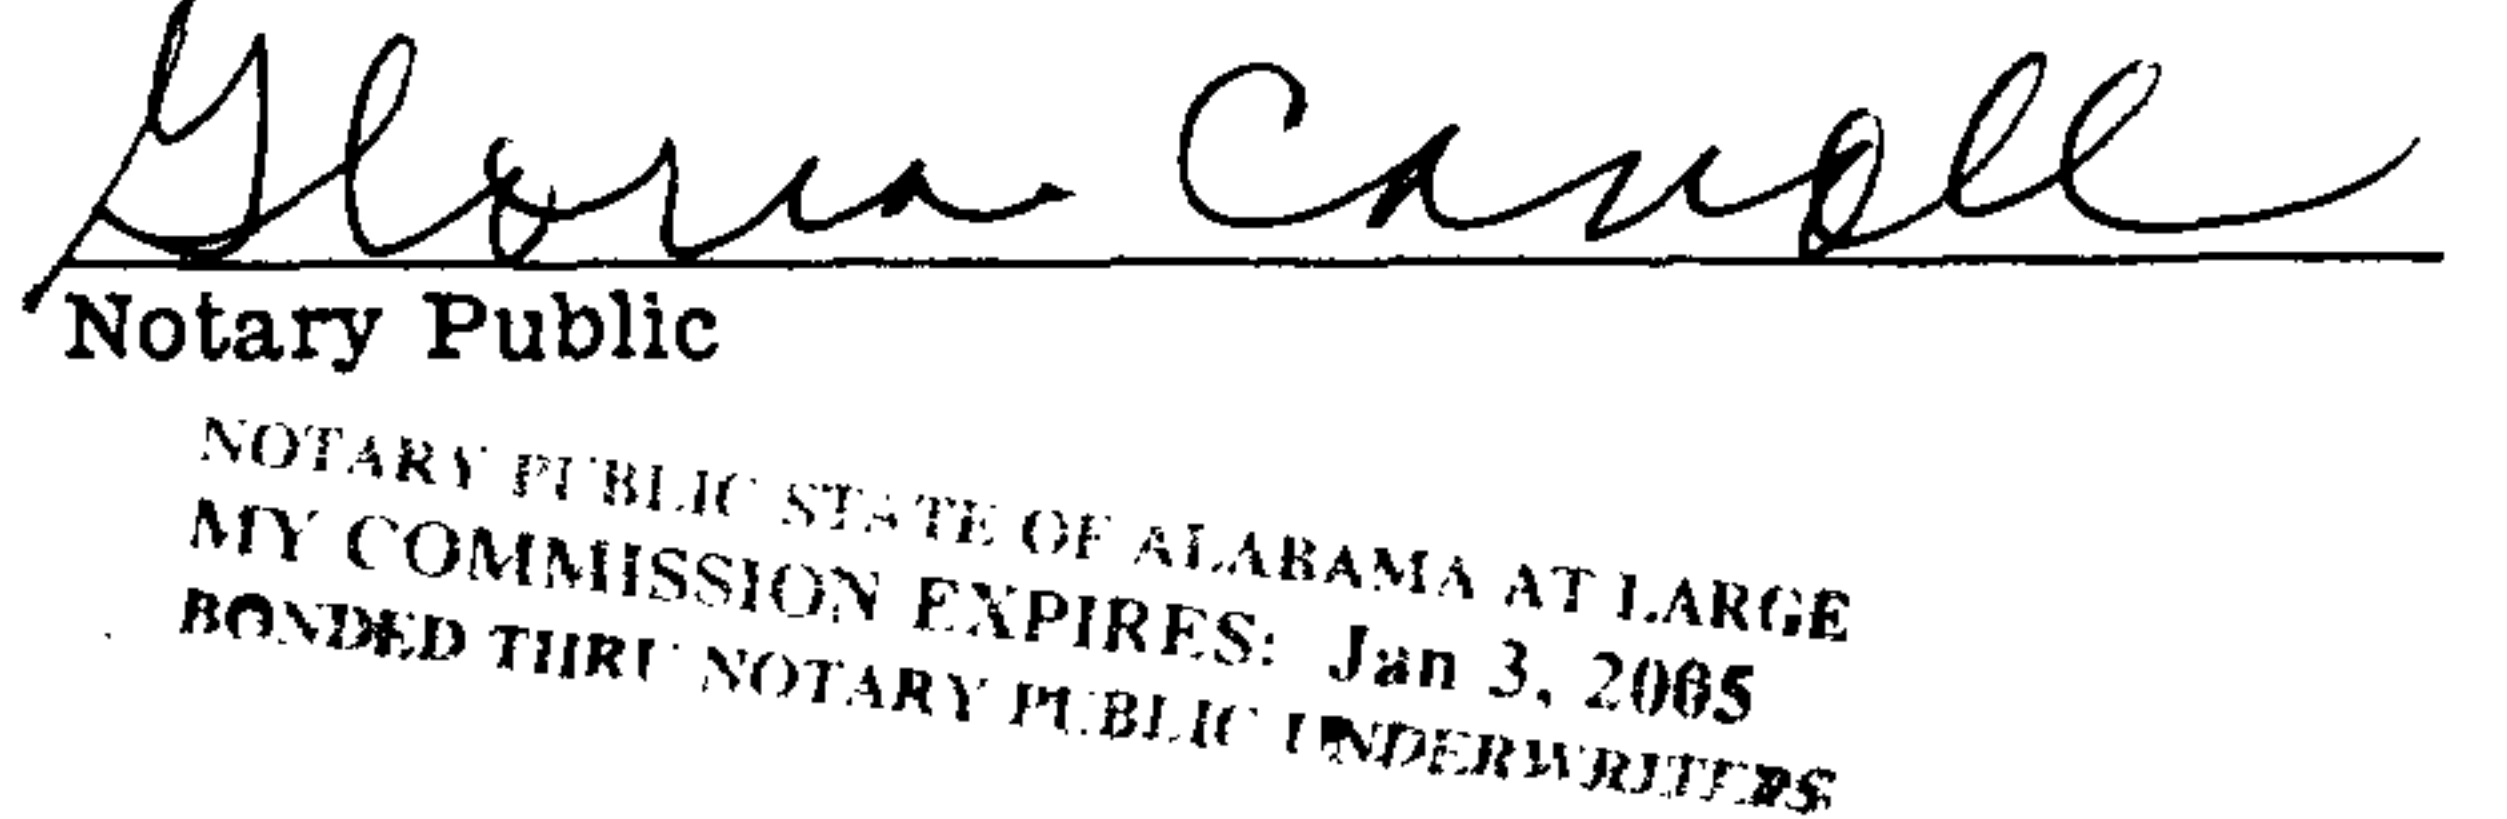 Gloria
Notary Public
NOTARY PUBLIC STATE OF ALABAMA AT LARGE
MY COMMISSION EXPIRES: Jan 3, 2005
BONDED THRU NOTARY PUBLIC UNDERWRITERS